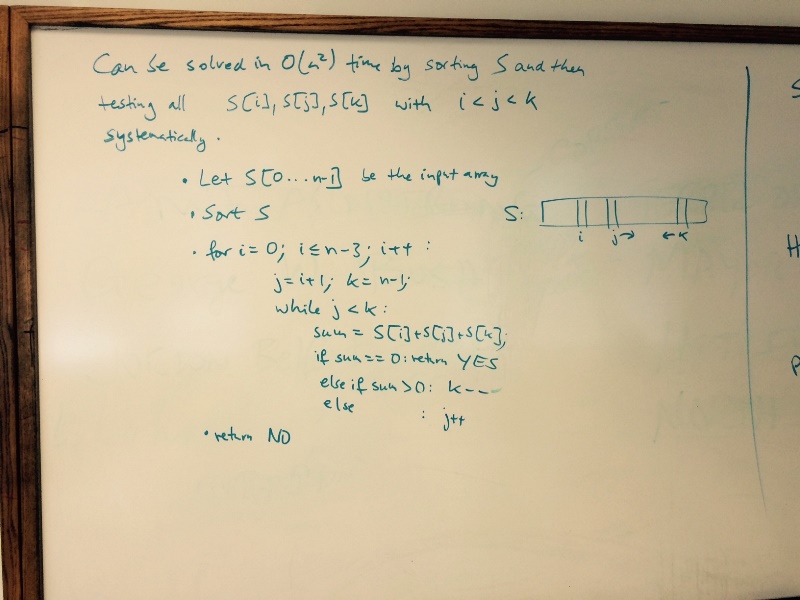 Can be solved in O(n²) time by sorting S and then
testing all S[i], S[j], S[k] with i < j < k
systematically.
• Let S[0...n-1] be the input array
• Sort S
S:
i j→ ←k
• for i=0; i≤n-3; i++ :
j=i+1; k=n-1;
while j<k:
sum = S[i]+S[j]+S[k];
if sum==0: return YES
else if sum>0: k--
else : j++
• return NO
S
H
P